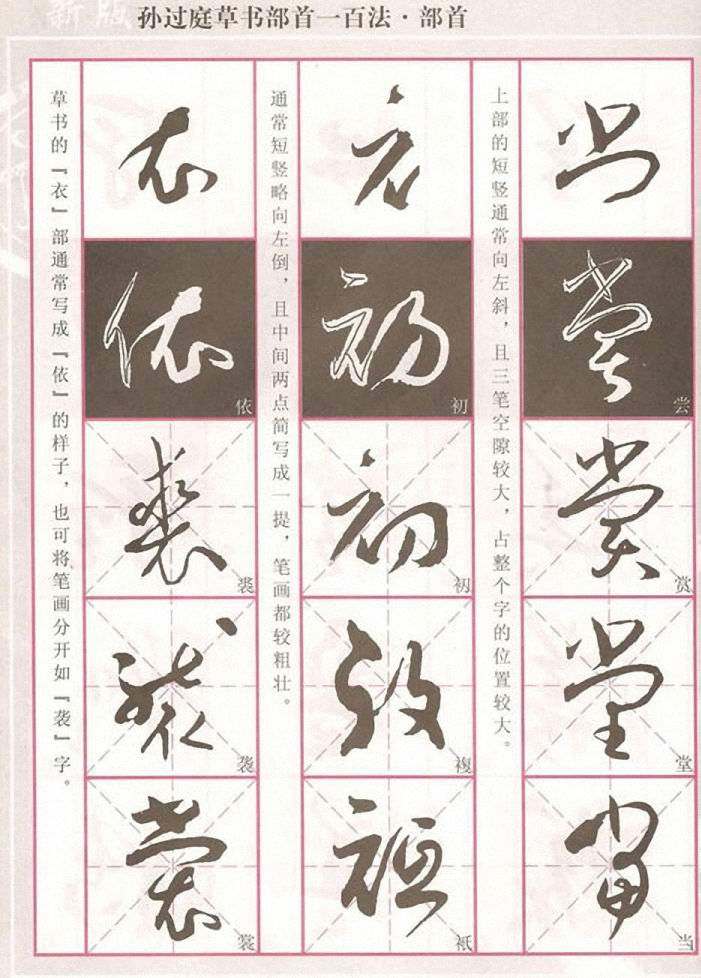 新版
孙过庭草书部首一百法·部首
上部的短竖通常向左斜，且三笔空隙较大，占整个字的位置较大。
尝
赏
堂
当
通常短竖略向左倒，且中间两点简写成一提，笔画都较粗壮。
初
初
複
祇
草书的「衣」部通常写成「依」的样子，也可将笔画分开如「袭」字。
依
裘
袭
裳